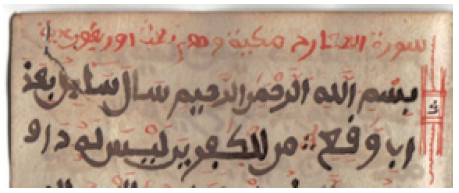 سورة المعارج مكية وهي
بسم الله الرحمن الرحيم سال سايل بعذ
اب وفع :: من للكفرين ليس له دا و